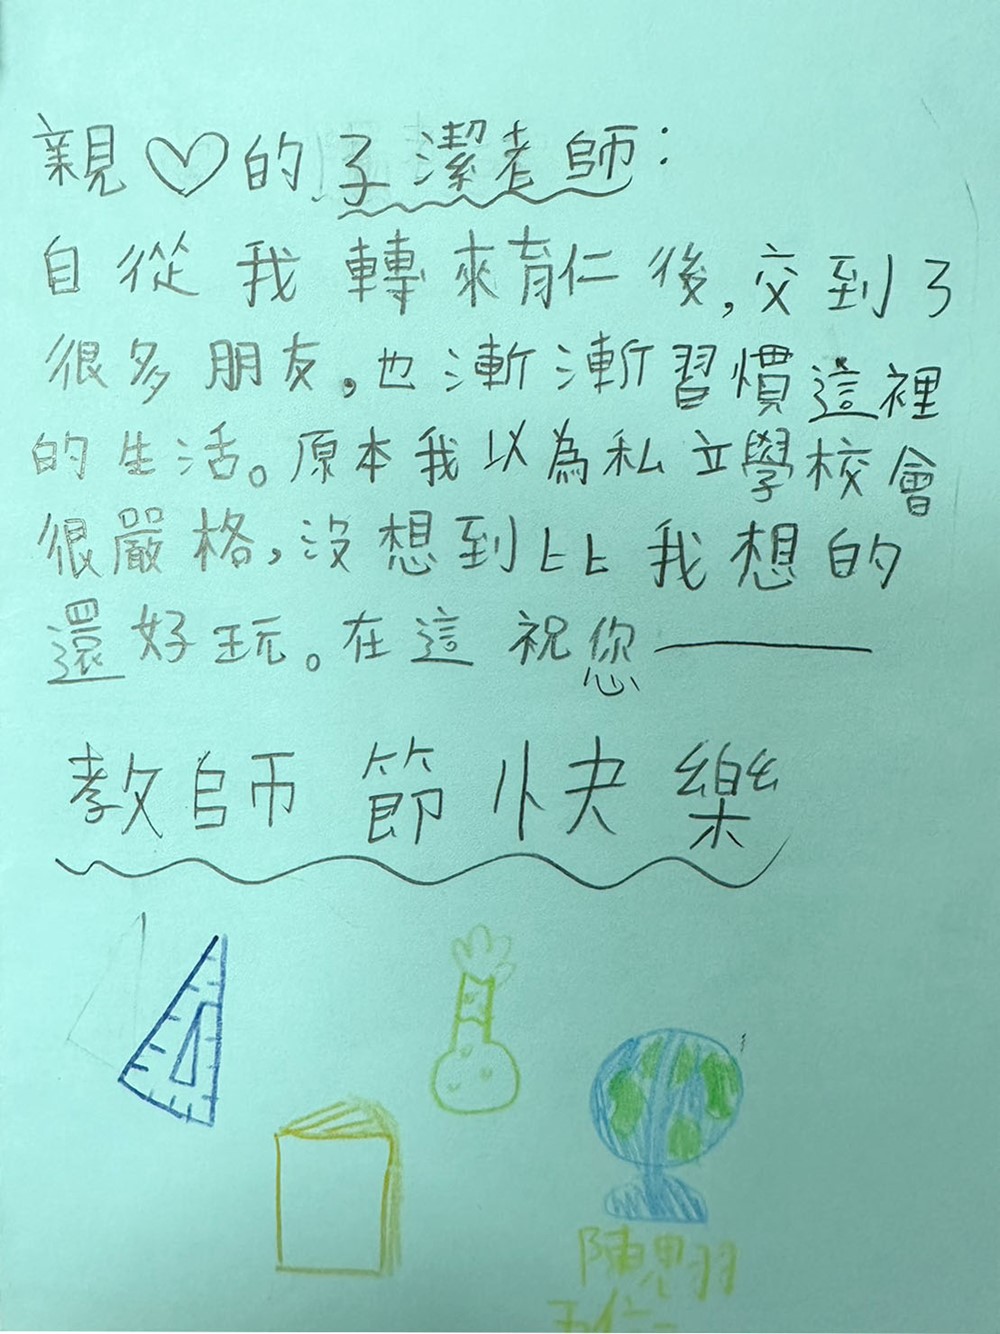 親♡的子潔老師：
自從我轉來育仁後,交到了
很多朋友,也漸漸習慣這裡
的生活。原本我以為私立學校會
很嚴格,沒想到比我想的
還好玩。在這祝您——
教師節快樂
陳思羽
五仁